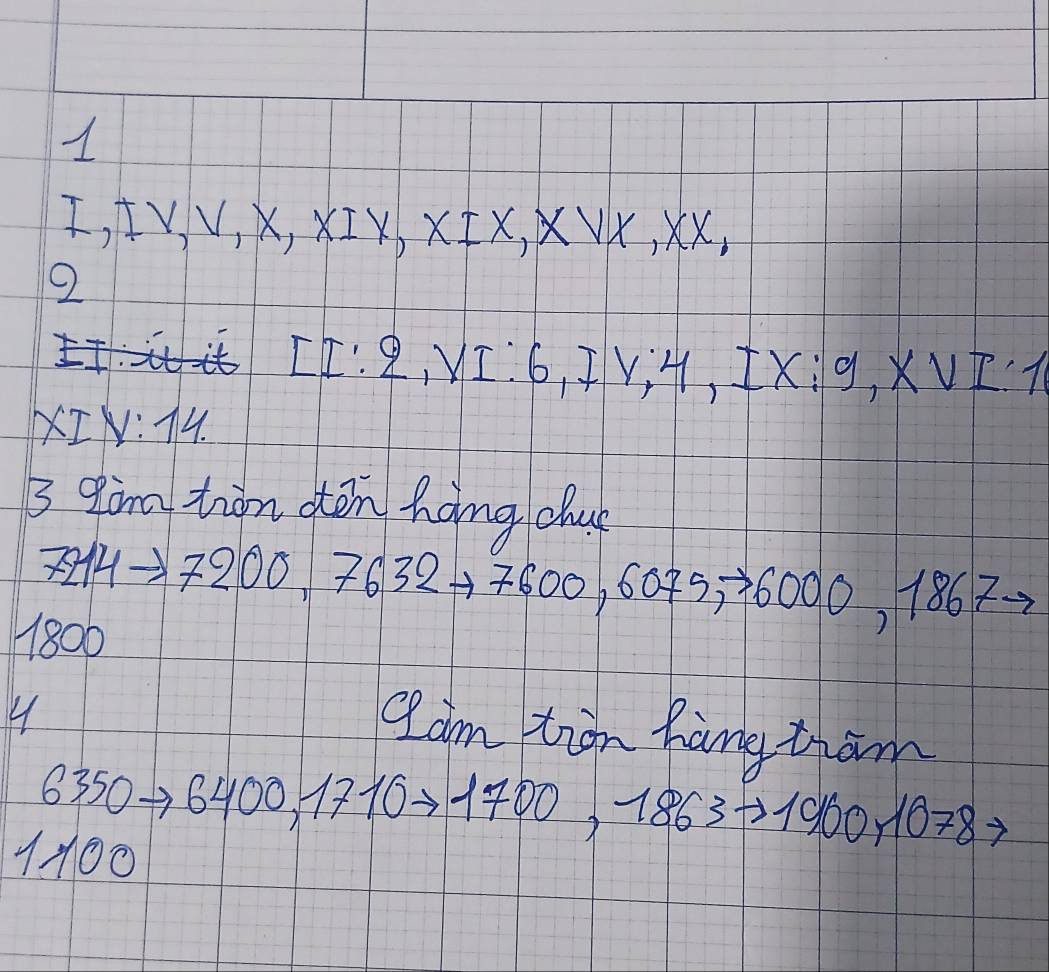 1
I, IV, V, X, XIV, XIX, XVX, XX,
2
II: ii it II: 2, VI: 6, IV: 4, IX: 9, XVI: 1
XIV: 14.
3 Làm tròn đến hàng chục
7214 → 7200, 7632 → 7600, 6075, → 6000, 1867 →
1800
4 Làm tròn hàng trăm
6350 → 6400, 1710 → 1700, 1863 → 1900, 1078 →
1100